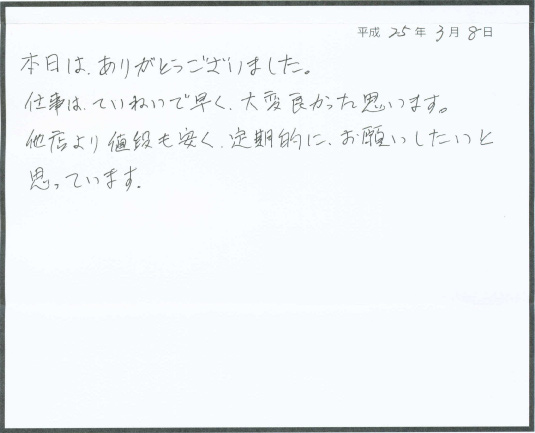 平成 25 年 3 月 8 日
本日は、ありがとうございました。
仕事は、ていねいで早く、大変良かった思います。
他店より値段も安く、定期的に、お願いしたいと
思っています。